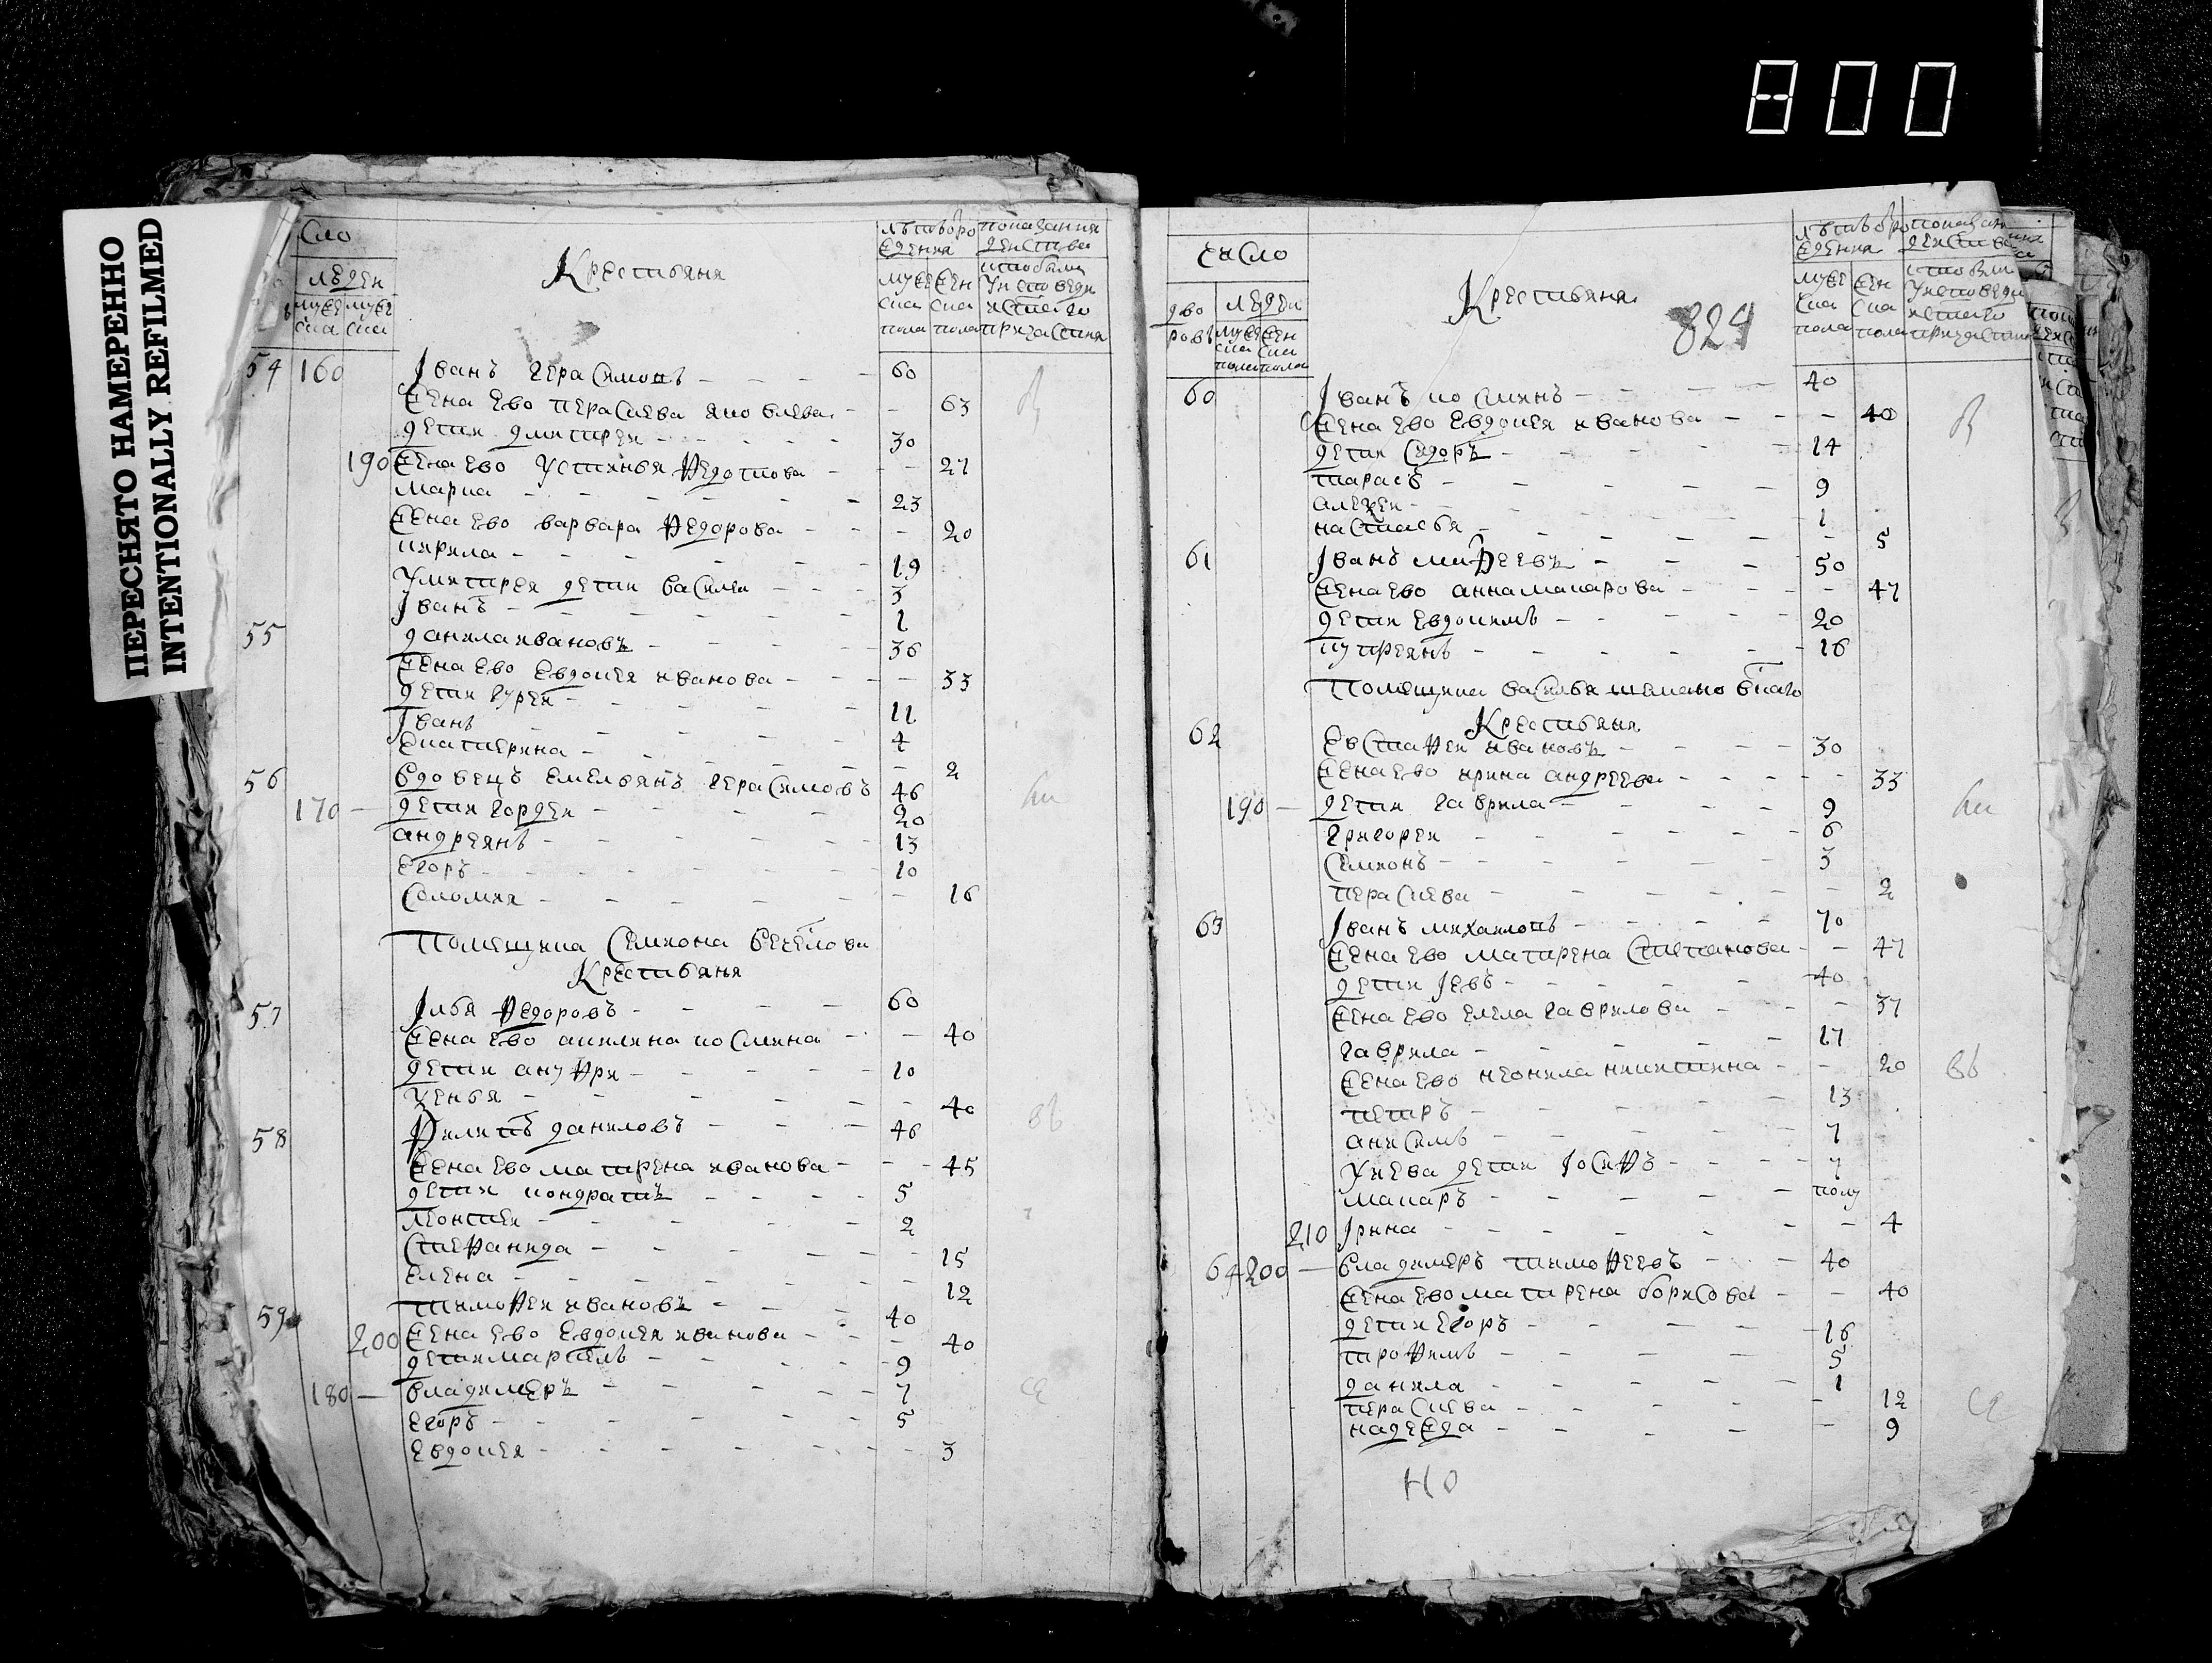 800
ПЕРЕСНЯТО НАМЕРЕННО
INTENTIONALLY REFILMED
сло
людеи
мужеска мужеска
Крестьяня
лѣтъ от рождения
мужеска пола
женска пола
показания действа кто был у исповеди и с°го причастия
54 160 Іванъ герасимовъ - 60
жена ево перасковья яковлева - 63
дети дмитреи - 30
190 жена ево устинья федотова - 27
марка - 23
жена ево варвара федорова - 20
кирила - 19
У митрея дети василеи - 3
Іванъ - 1
55 данила ивановъ - 36
жена ево Евдокея иванова - 33
дети гурей - 11
Іванъ - 4
Екатерина - 2
56 вдовецъ емельянъ герасимовъ 46
170 — дети гордеи - 20
андреянъ - 13
Егоръ - 10
Соломия - 16
Помещика Симиона
Крестьяня
57 Ілья федоровъ - 60
жена ево акилина космина - 40
дети ануфри - 10
40
58 Филипъ даниловъ - 46
жена ево матрена иванова - 45
дети кондратъ - 5
леонтеи - 2
Стефанида - 15
Елена - 12
59 тимофеи ивановъ - 40
200 жена ево Евдокея иванова - 40
дети мартинъ - 9
180 — владимеръ - 7
Егоръ - 5
Евдокея - 3
число
дворовъ
людеи
мужеска пола женска пола
Крестьяня
824
60 Іванъ косминъ - 40
жена ево Евдокея иванова - 40
дети Сидоръ - 14
тарасъ - 9
алеѯеи - 1
настасья - 5
61 Іванъ михѣевъ - 50
жена ево анна макарова - 47
дети Евдокимъ - 20
купреянъ - 16
Помещика василья
Крестьяня
62 Евстафеи ивановъ - 30
жена ево ирина андреева - 33
190 — дети гаврила - 9
григореи - 6
Симионъ - 3
перасковья - 2
63 Іванъ михаиловъ - 70
жена ево матрена Степанова - 47
дети Іевъ - 40
жена ево гаврилова - 37
гаврила - 17
жена ево неонила никитина - 20
петръ - 13
анисимъ - 7
У иева дети Іосифъ - 7
макаръ - полу
210 Ірина - 4
64 200 — владимеръ тимофеевъ - 40
жена ево матрена борисова - 40
дети Егоръ - 16
трофимъ - 5
данила - 1
перасковья - 12
надежда - 9